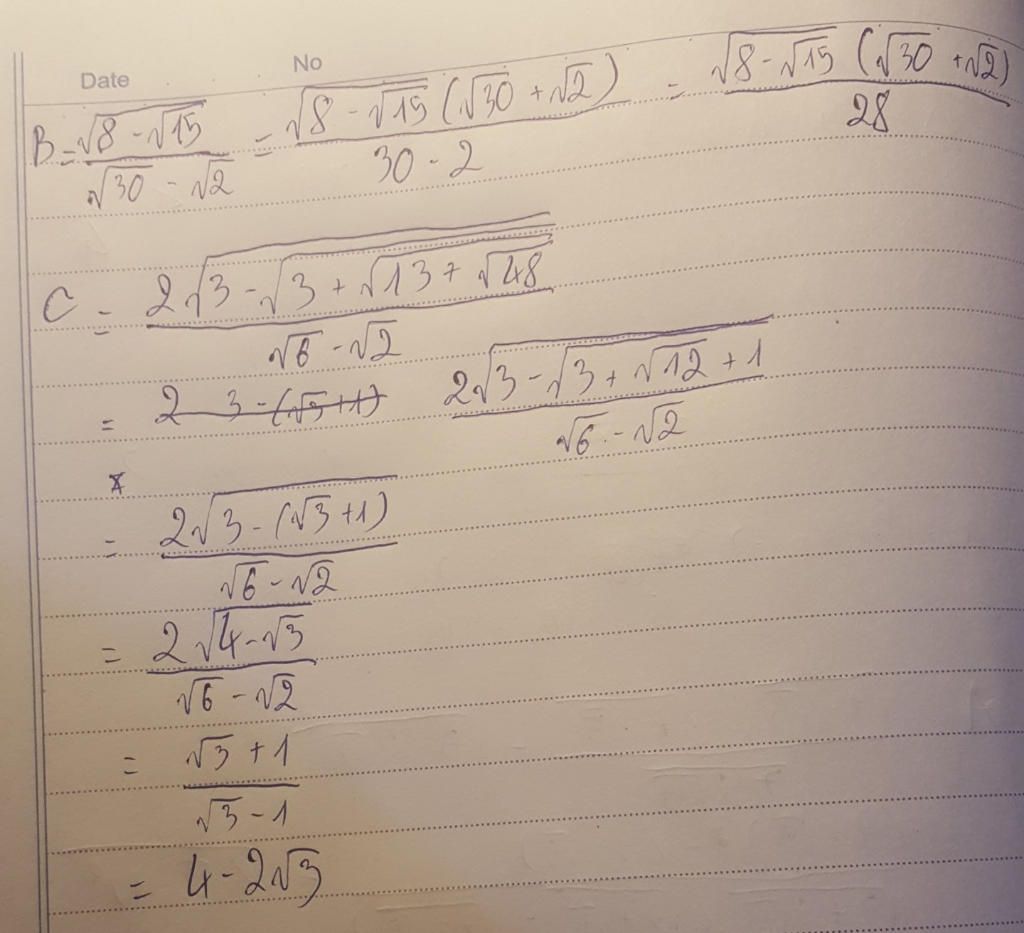 Date No
B = √(8 - √15) / (√30 - √2) = √(8 - √15) (√30 + √2) / (30 - 2) = √(8 - √15) (√30 + √2) / 28
C = 2√(3 - √(3 + √(13 + √48))) / (√6 - √2)
= 2 3 - (√3 + 1) 2√(3 - √(3 + √12 + 1)) / (√6 - √2)
= 2√(3 - (√3 + 1)) / (√6 - √2)
= 2√(4 - √3) / (√6 - √2)
= (√3 + 1) / (√3 - 1)
= 4 - 2√3